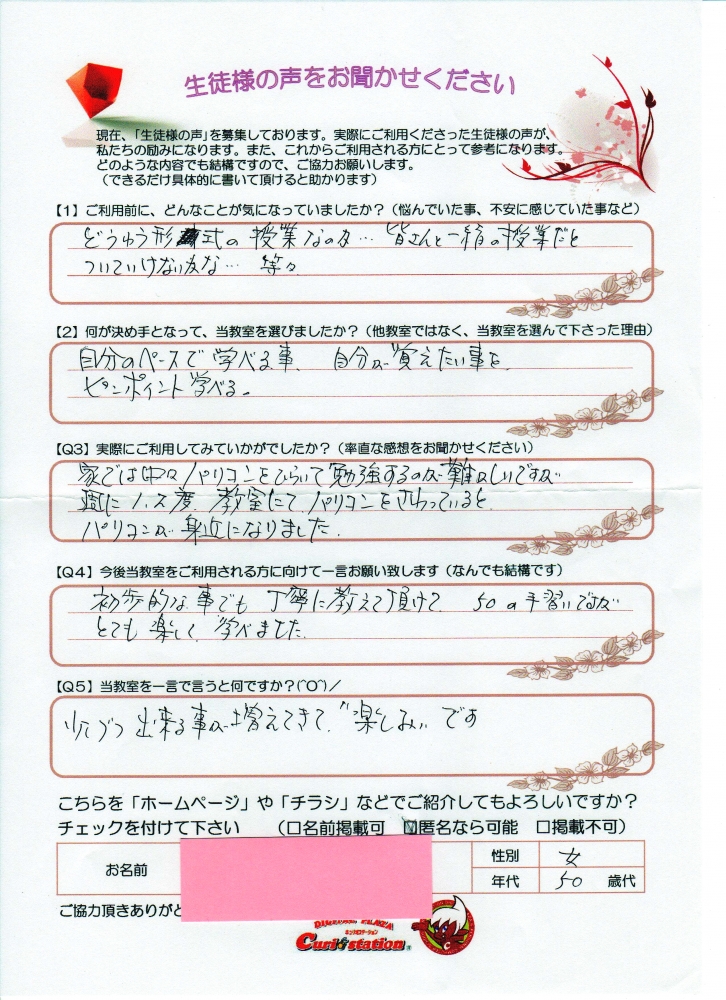 生徒様の声をお聞かせください
現在、「生徒様の声」を募集しております。実際にご利用くださった生徒様の声が、
私たちの励みになります。また、これからご利用される方にとって参考になります。
どのような内容でも結構ですので、ご協力お願いします。
（できるだけ具体的に書いて頂けると助かります）
【1】ご利用前に、どんなことが気になっていましたか？（悩んでいた事、不安に感じていた事など）
どうゆう形式の授業なのか… 皆さんと一緒の授業だと
ついていけないかな… 等々
【2】何が決め手となって、当教室を選びましたか？（他教室ではなく、当教室を選んで下さった理由）
自分のペースで学べる事、自分が覚えたい事を
ピンポイント学べる。
【Q3】実際にご利用してみていかがでしたか？（率直な感想をお聞かせください）
家では中々パソコンをひらいて勉強するのが難しいですが
週に1、2度、教室にてパソコンをさわっていると、
パソコンが身近になりました。
【Q4】今後当教室をご利用される方に向けて一言お願い致します（なんでも結構です）
初歩的な事でも丁寧に教えて頂けて 50の手習いですが
とても楽しく学べました。
【Q5】当教室を一言で言うと何ですか？(^O^)／
少しづつ出来る事が増えてきて、"楽しみ" です
こちらを「ホームページ」や「チラシ」などでご紹介してもよろしいですか？
チェックを付けて下さい （□名前掲載可 ☑匿名なら可能 □掲載不可）
お名前 性別 女
年代 50 歳代
ご協力頂きありがと
DIGITAL PLAZA
キュリオステーション
Curio station